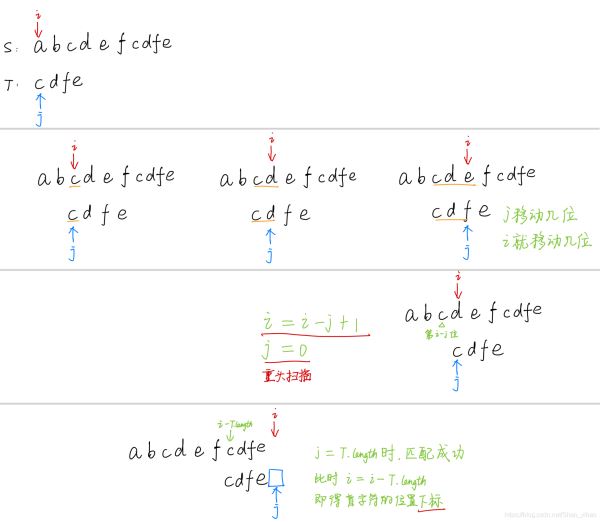 i
S: a b c d e f c d f e
T: c d f e
j
i i i
a b c d e f c d f e a b c d e f c d f e a b c d e f c d f e
c d f e c d f e c d f e
j移动几位
i就移动几位
j j j
i
a b c d e f c d f e
第i-j位
c d f e
j
i = i-j+1
j = 0
重头扫描
i-T.length i
a b c d e f c d f e
c d f e
j
j = T.length 时, 匹配成功
此时 i = i-T.length
即得首字符的位置下标